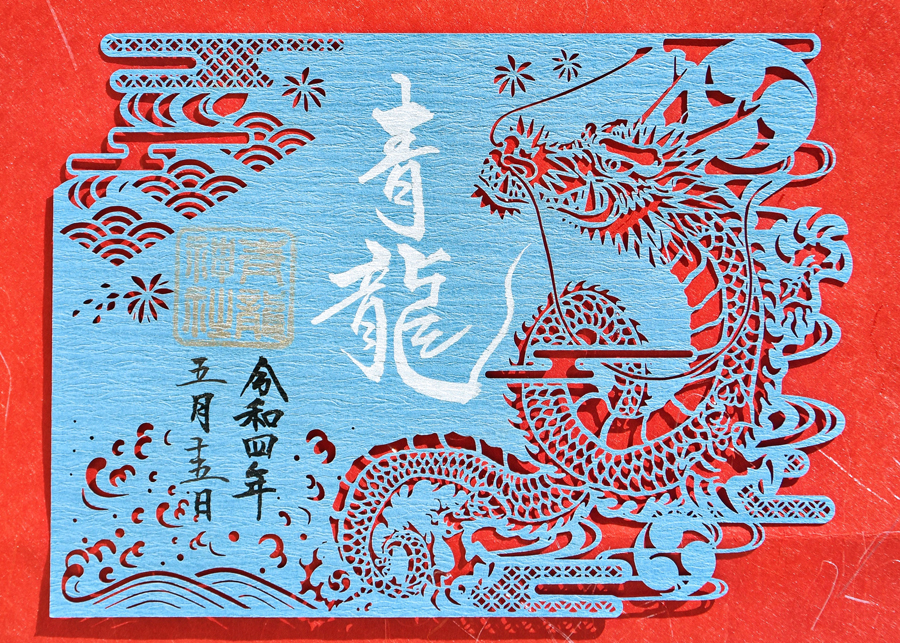 青龍
青龍
神社
令和四年
五月十五日